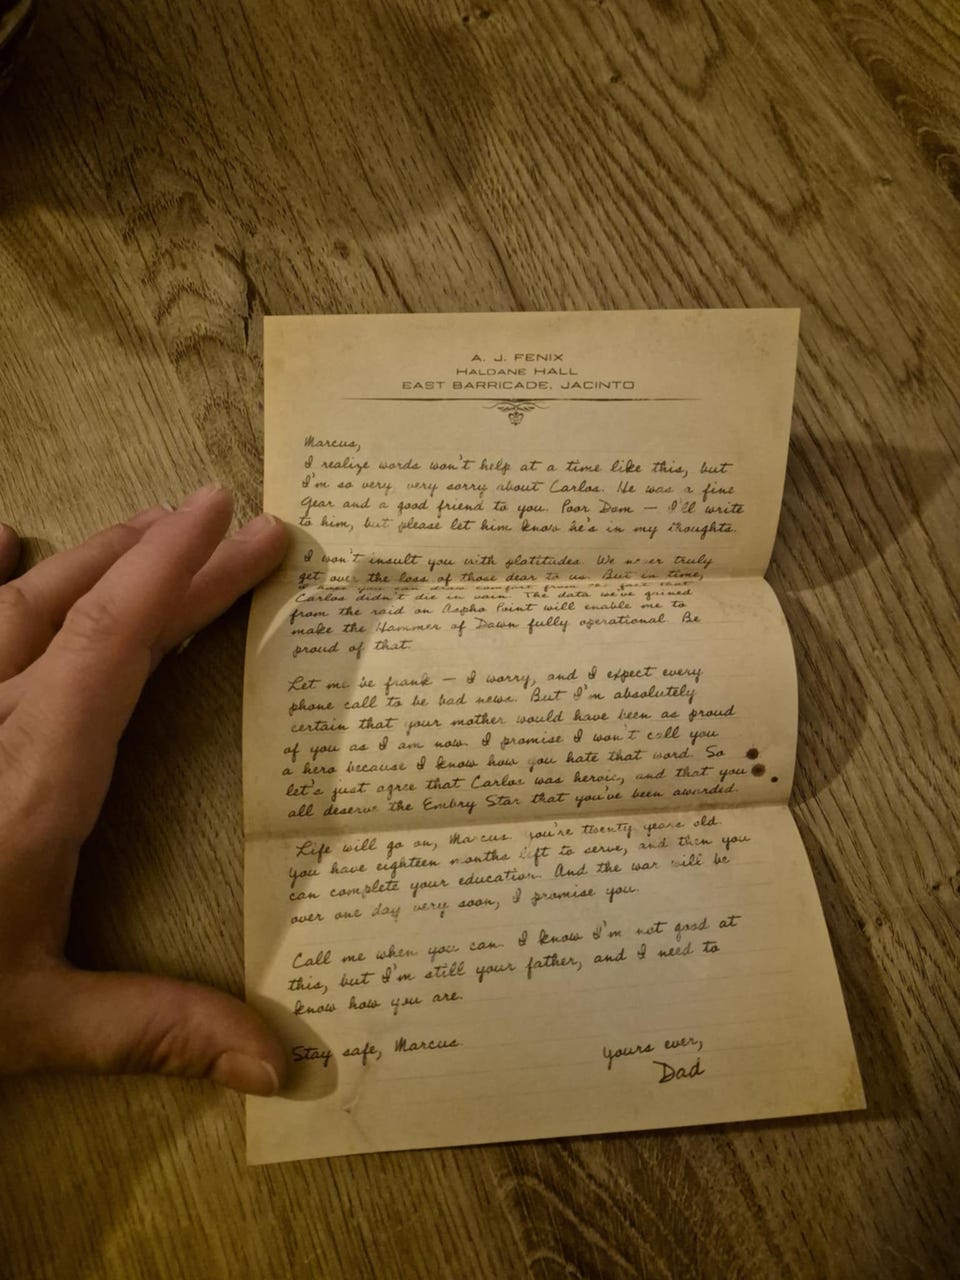 A. J. FENIX
HALDANE HALL
EAST BARRICADE, JACINTO
Marcus,
I realize words won't help at a time like this, but
I'm so very, very sorry about Carlos. He was a fine
Gear and a good friend to you. Poor Dom — I'll write
to him, but please let him know he's in my thoughts.
I won't insult you with platitudes. We never truly
get over the loss of those dear to us. But in time,
I hope you can draw comfort from the fact that
Carlos didn't die in vain. The data we've gained
from the raid on Aspho Point will enable me to
make the Hammer of Dawn fully operational. Be
proud of that.
Let me be frank — I worry, and I expect every
phone call to be bad news. But I'm absolutely
certain that your mother would have been as proud
of you as I am now. I promise I won't call you
a hero because I know how you hate that word. So
let's just agree that Carlos was heroic, and that you
all deserve the Embry Star that you've been awarded.
Life will go on, Marcus. You're twenty years old.
You have eighteen months left to serve, and then you
can complete your education. And the war will be
over one day very soon, I promise you.
Call me when you can. I know I'm not good at
this, but I'm still your father, and I need to
know how you are.
Stay safe, Marcus.
Yours ever,
Dad